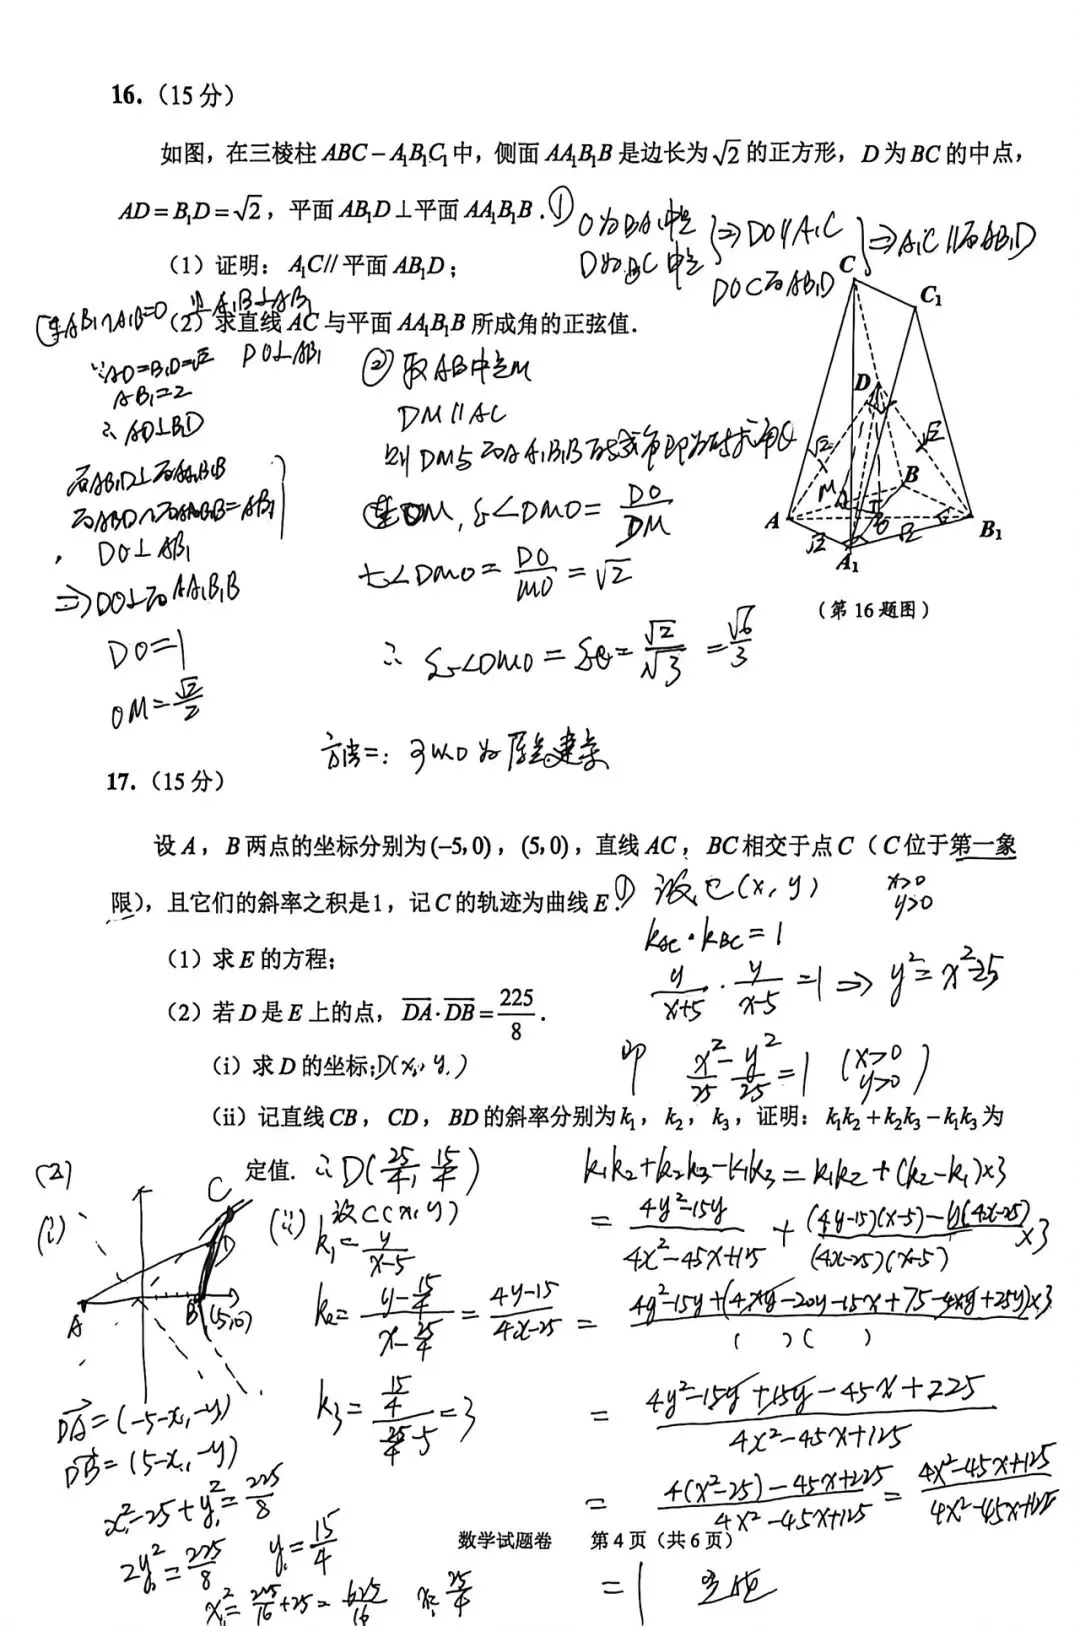 16.（15分）
如图，在三棱柱 ABC－A₁B₁C₁ 中，侧面 AA₁B₁B 是边长为 √2 的正方形，D 为 BC 的中点，
AD = B₁D = √2，平面 AB₁D ⊥ 平面 AA₁B₁B．
① O为BA₁中点
D为BC中点
⇒ DO∥A₁C
DO⊂面AB₁D
⇒ A₁C∥面AB₁D
（1）证明：A₁C // 平面 AB₁D；
（2）求直线 AC 与平面 AA₁B₁B 所成角的正弦值．
AB₁∩A₁B=O
A₁B⊥AB₁
∵AD=B₁D=√2
DO⊥AB₁
AB₁=2
∴AD⊥B₁D
面AB₁D⊥面AA₁B₁B
面AB₁D∩面AA₁B₁B=AB₁
DO⊥AB₁
⇒DO⊥面AA₁B₁B
DO=1
OM=√2/2
② 取AB中点M
DM∥AC
则DM与面AA₁B₁B所成角即为所求角θ
连OM, sin∠DMO = DO/DM
tan∠DMO = DO/MO = √2
∴ sin∠DMO = sinθ = √2/√3 = √6/3
C
C₁
D
√2
√2
B
M
A
B₁
√2
√2
A₁
（第 16 题图）
方法二：以O为原点建系
17.（15分）
设 A，B 两点的坐标分别为 (−5,0)，(5,0)，直线 AC，BC 相交于点 C（C 位于第一象
限），且它们的斜率之积是 1，记 C 的轨迹为曲线 E．
① 设C(x, y)
x>0
y>0
k_AC·k_BC=1
y/(x+5)·y/(x-5)=1 ⇒ y²=x²-25
即 x²/25 - y²/25 = 1 (x>0 y>0)
（1）求 E 的方程；
（2）若 D 是 E 上的点，DA·DB = 225/8．
（i）求 D 的坐标；D(x₁, y₁)
（ii）记直线 CB，CD，BD 的斜率分别为 k₁，k₂，k₃，证明：k₁k₂ + k₂k₃ − k₁k₃ 为
定值．
∴D(25/4, 15/4)
(2)
(i)
C
D
A
B
(5,0)
DA=(-5-x₁,-y₁)
DB=(5-x₁,-y₁)
x₁²-25+y₁²=225/8
2y₁²=225/8
y₁=15/4
x₁²=225/16+25=625/16
x₁=25/4
(ii) 设C(x, y)
k₁=y/(x-5)
k₂=(y-15/4)/(x-25/4)=(4y-15)/(4x-25)
k₃=(15/4)/(25/4-5)=3
k₁k₂+k₂k₃-k₁k₃=k₁k₂+(k₂-k₁)×3
=(4y²-15y)/(4x²-45x+125)+((4y-15)(x-5)-y(4x-25))/((4x-25)(x-5))×3
=(4y²-15y+(4xy-20y-15x+75-4xy+25y)×3)/( )( )
=(4y²-15y+15y-45x+225)/(4x²-45x+125)
=(4(x²-25)-45x+225)/(4x²-45x+125)=(4x²-45x+125)/(4x²-45x+125)
=1 定值
数学试题卷 第 4 页（共 6 页）